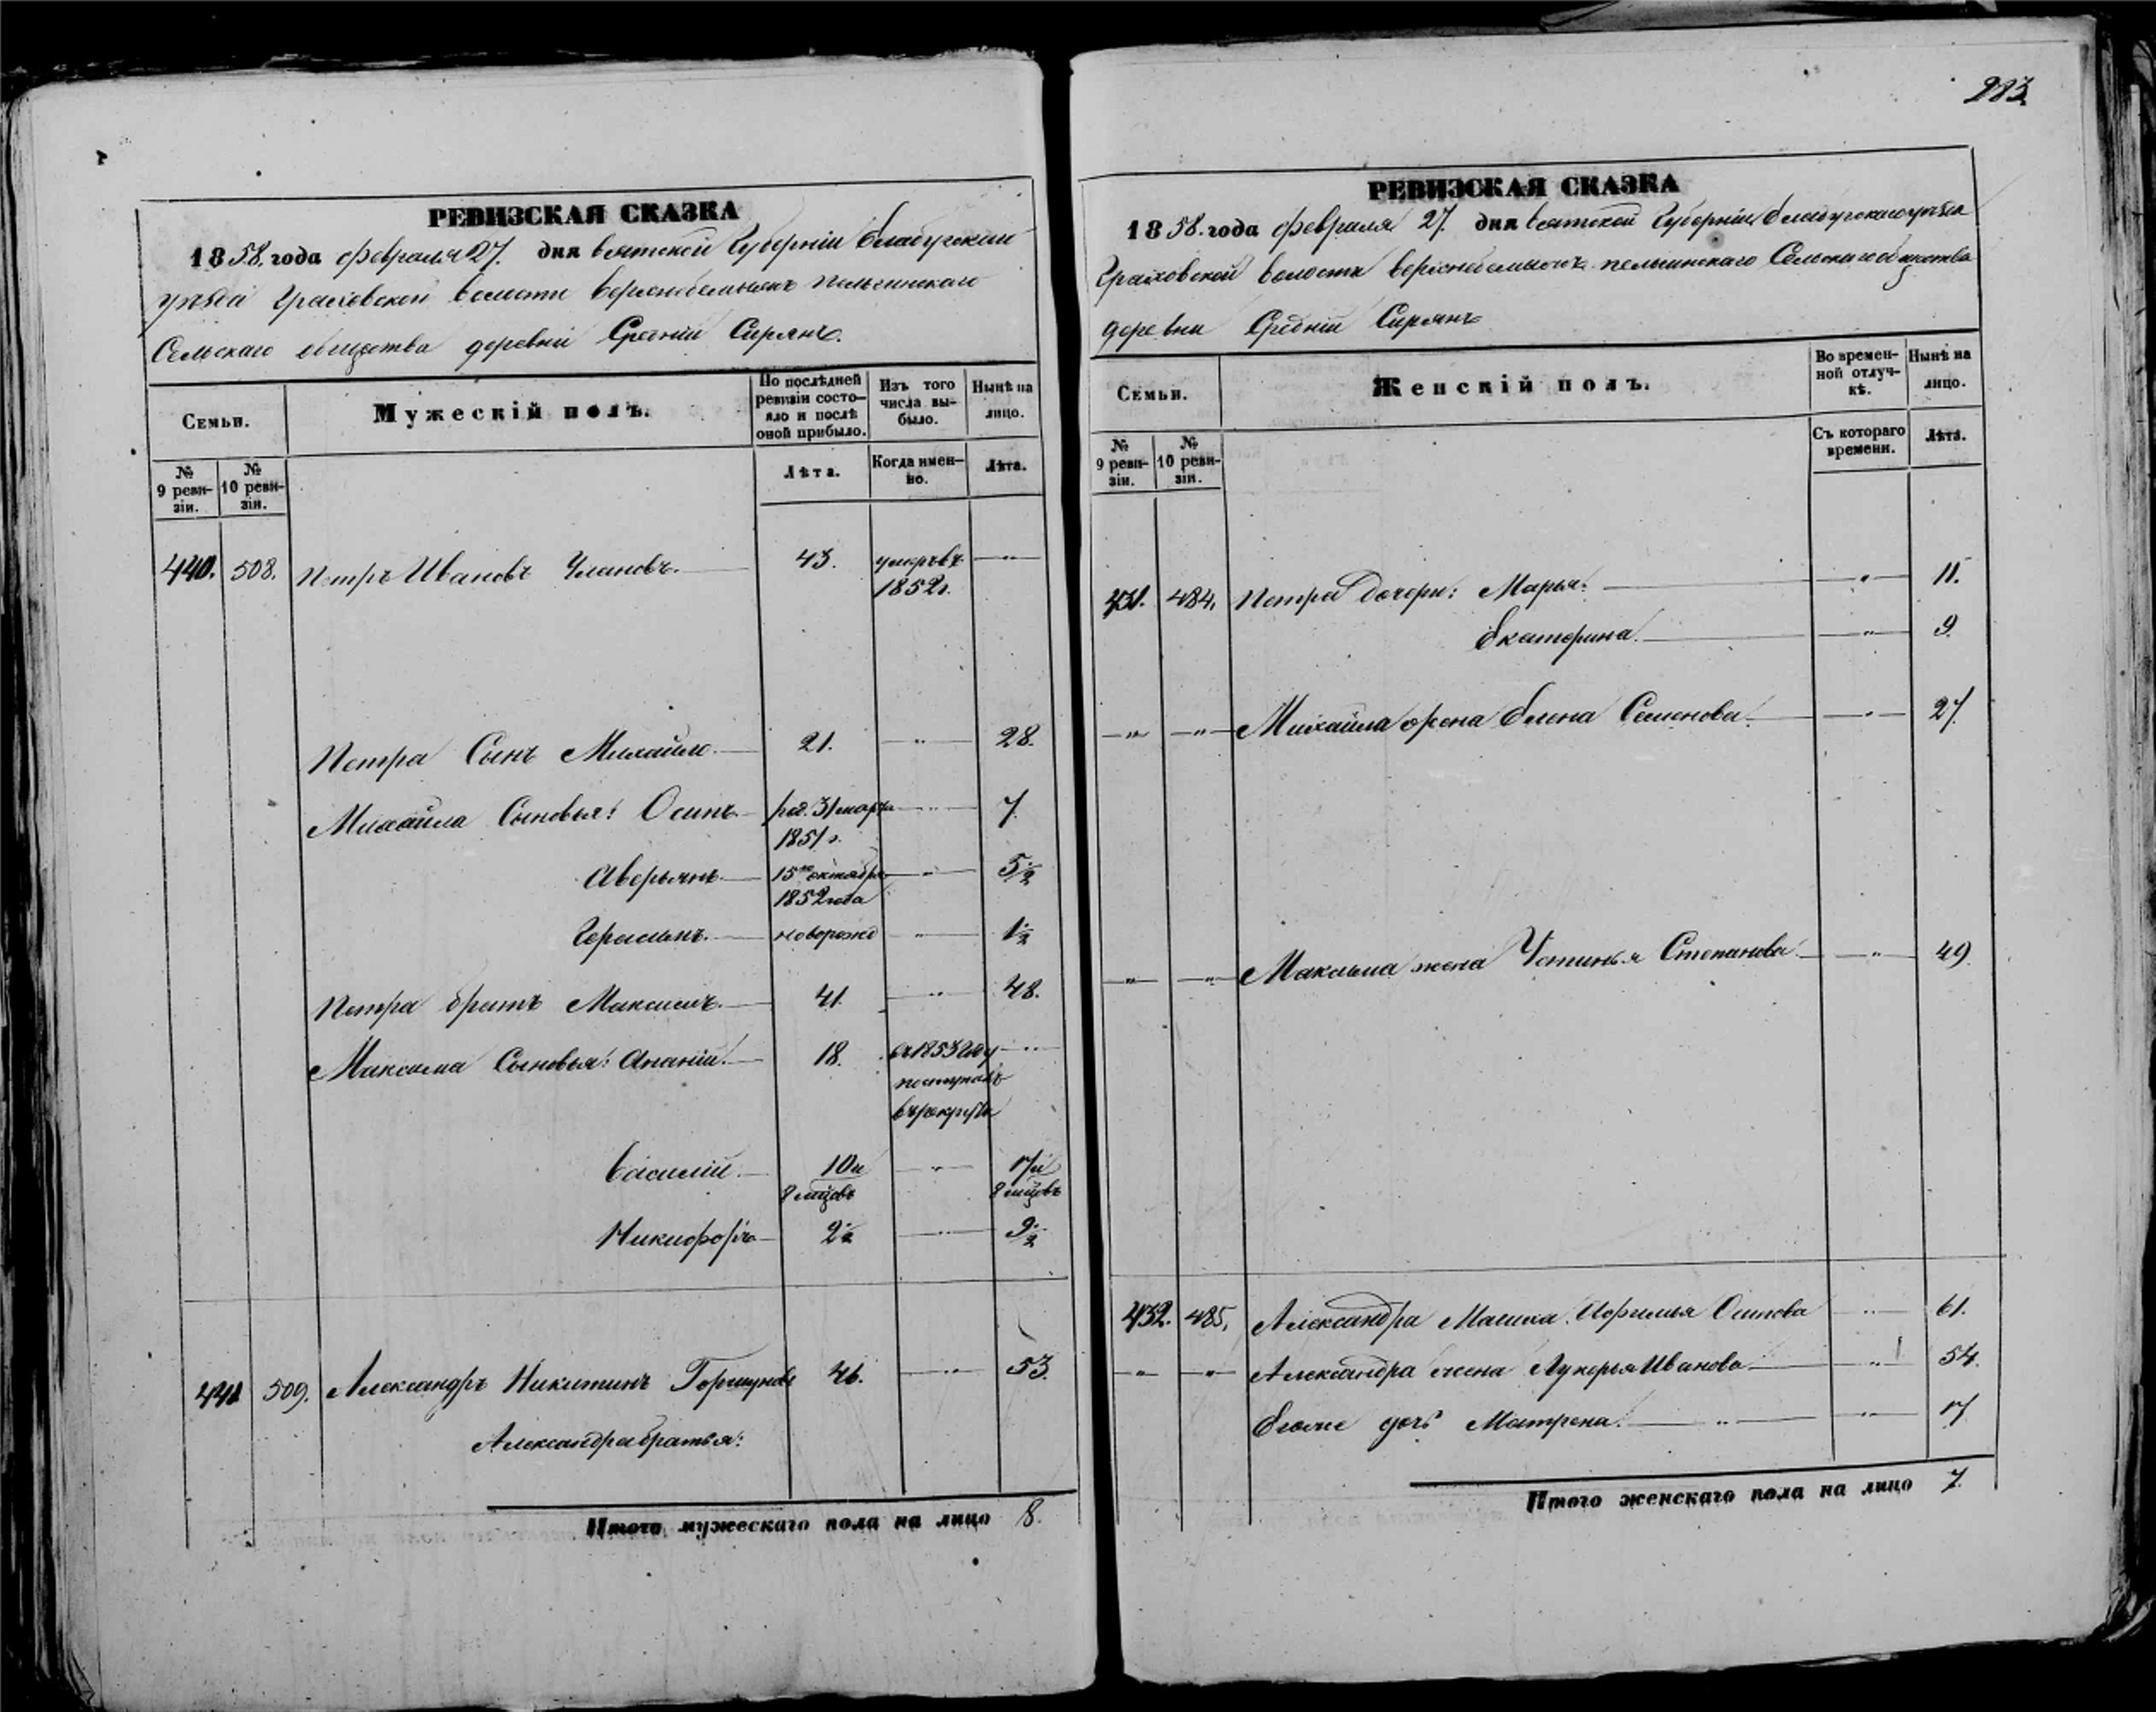 283.
РЕВИЗСКАЯ СКАЗКА
1858. года февраля 27. дня Вятской Губерніи Елабугскаго
уѣзда Граховской волости
Сельскаго общества деревни Средній Сирянъ.
Семьи.
Мужескій полъ.
По послѣдней ревизіи состояло и послѣ оной прибыло.
Изъ того числа выбыло.
Нынѣ на лицо.
№ 9 ревизіи.
№ 10 ревизіи.
Лѣта.
Когда именно.
Лѣта.
440. 508. Петръ Ивановъ 43. умеръ въ 1852 г. — " —
Петра Сынъ Михайло. 21. — " — 28.
Михайла Сыновья: Осипъ. род. 31 марта 1851 г. — " — 7
Аверьянъ 15го октября 1852 года — " — 5 1/2
Герасимъ. новорожд — " — 1 1/2
Петра братъ Максимъ. 41. — " — 48.
Максима Сыновья: Ананій. 18. въ 1853 году поступилъ въ рекруты — " —
Василій. 10 и 8 мцовъ — " — 17 и 8 мцовъ
Никифоръ 2 1/2 — " — 9 1/2
441 509. Александръ Никитинъ Горшуновъ 46. — " — 53.
Александра братья:
Итого мужескаго пола на лицо 8.
РЕВИЗСКАЯ СКАЗКА
1858. года февраля 27. дня Вятской Губерніи Елабугскаго уѣзда
Граховской волости Сельскаго общества
деревни Средній Сирянъ
Семьи.
Женскій полъ.
Во временной отлучкѣ.
Нынѣ на лицо.
№ 9 ревизіи.
№ 10 ревизіи.
Съ котораго времени.
Лѣта.
431. 484. Петра дочери: Марья. — " — 11.
Екатерина. — " — 9
— " — — " — Михайла жена Елена Семенова. — " — 27
— " — — " — Максима жена Устинья Степанова — " — 49
432. 485. Александра Мачиха Осипова — " — 61.
— " — — " — Александра жена Лукерья Иванова — " — 54.
Его же дочь Матрена. — " — — " — 17
Итого женскаго пола на лицо 7.